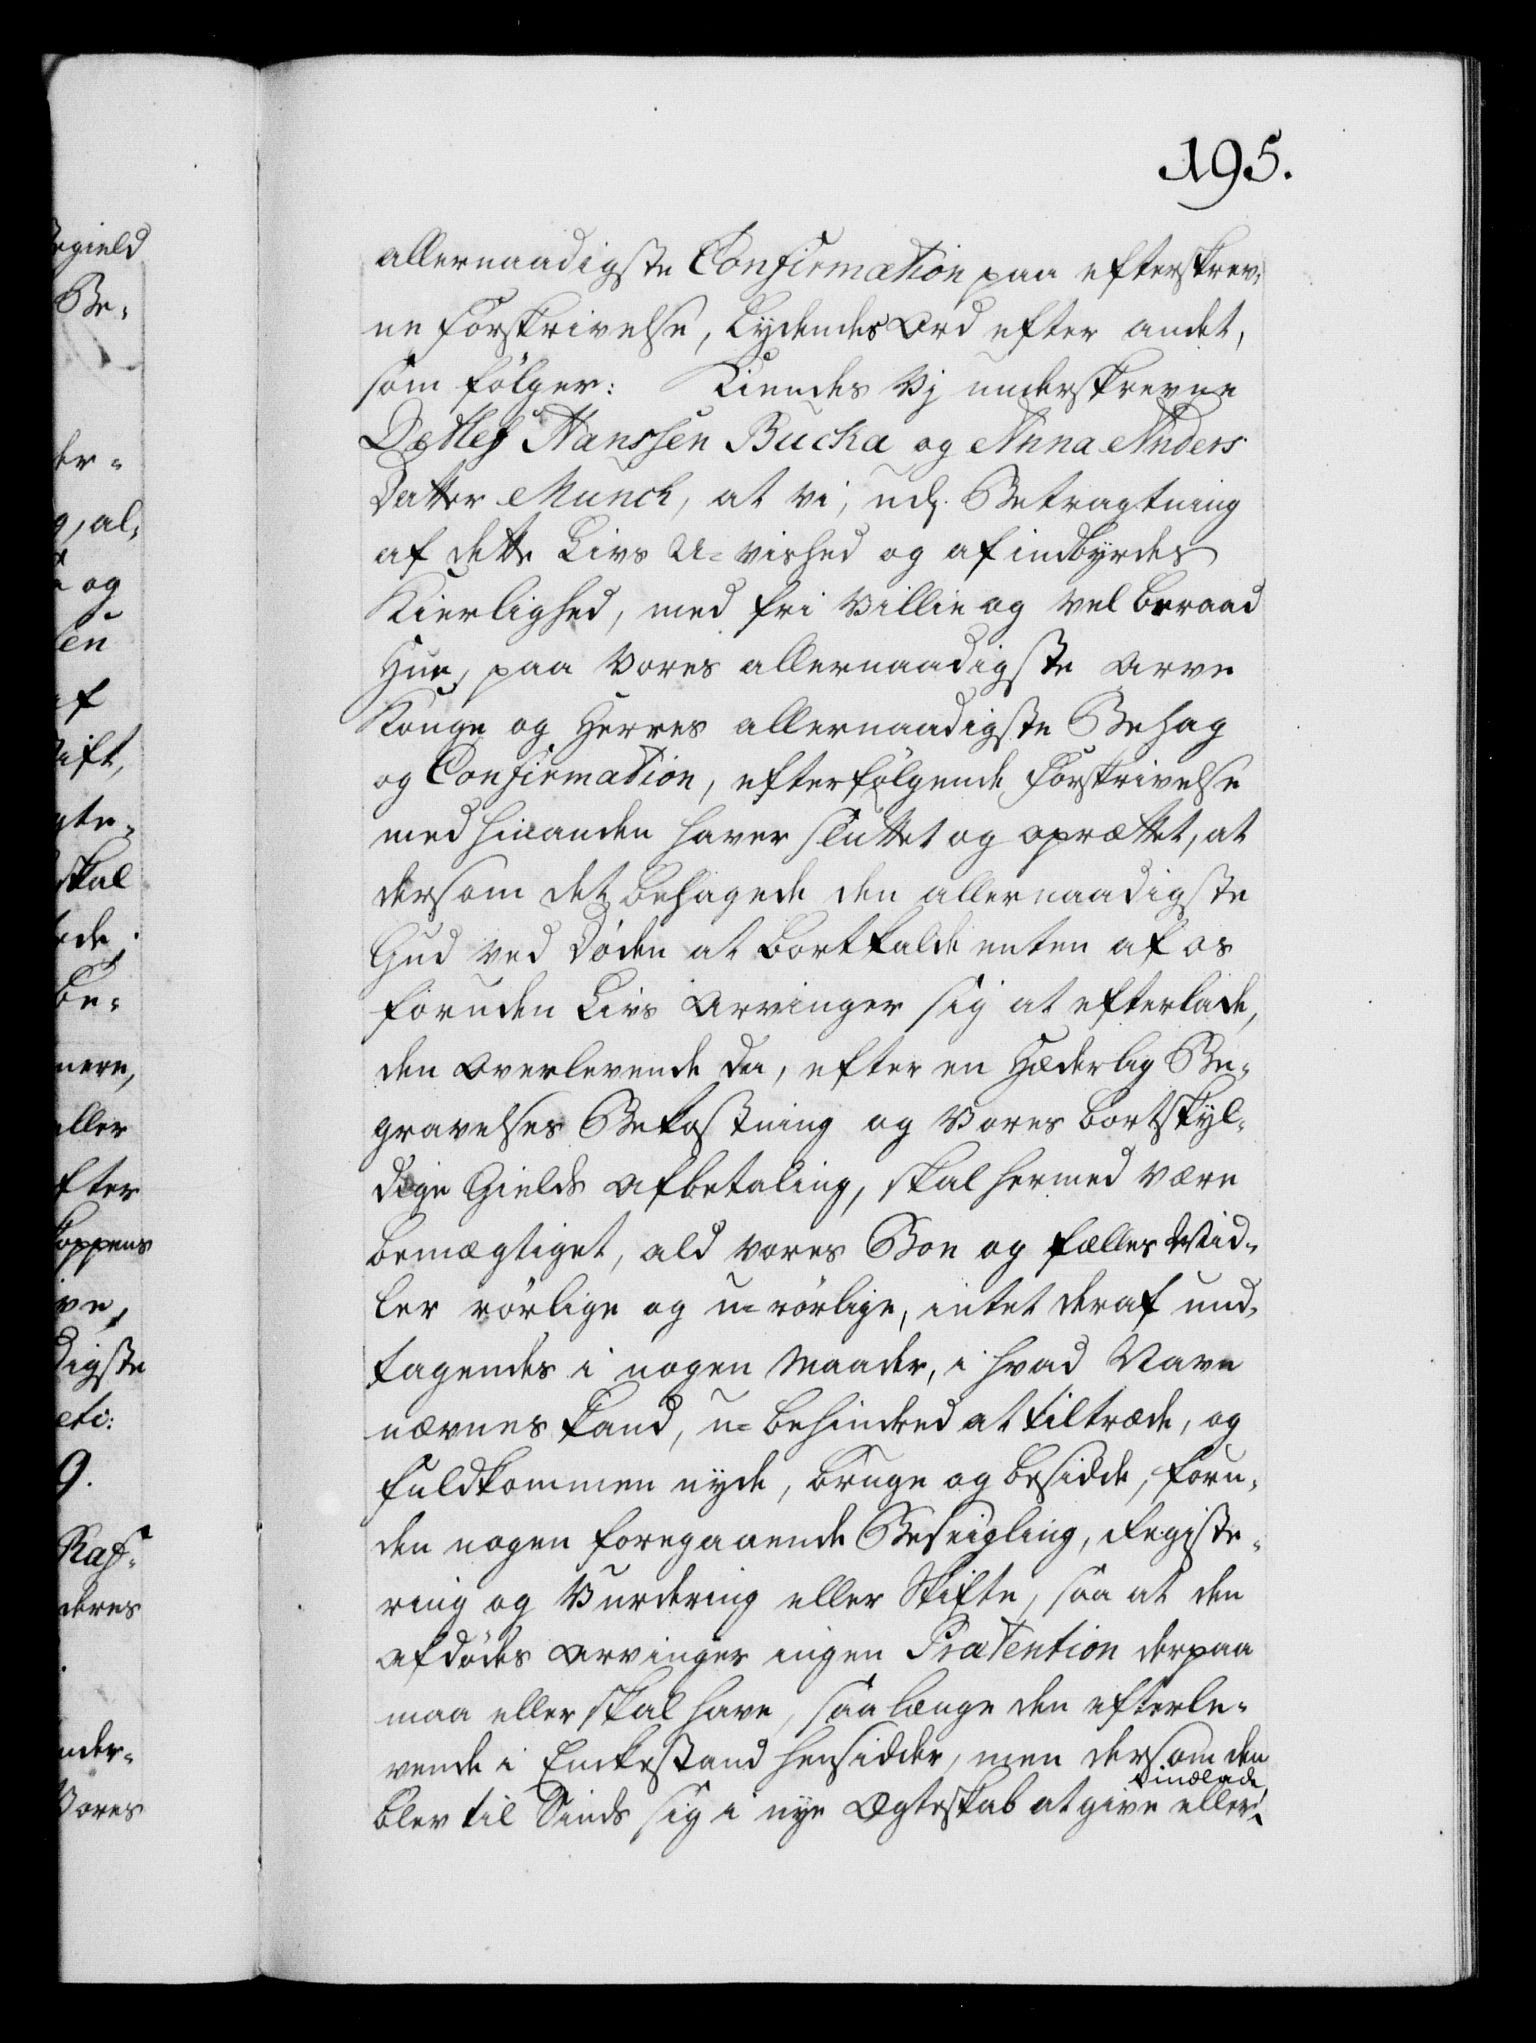 195.
allernaadigste Confirmation paa efterskrev-
ne Forskrivelse, Lydendes Ord efter andet,
som følger: Kiendes Vj underskrevne
Detlef Hanssen Bucka og Anna Anders
Datter Munch, at vi, udj Betragtning
af dette Livs U-vished og af indbyrdes
Kierlighed, med fri Villie og vel beraad
Hue, paa Vores allernaadigste Arve
Konge og Herres allernaadigste Behag
og Confirmation, efterfølgende Forskrivelse
med hinanden haver sluttet og oprættet, at
dersom det behagede den allernaadigste
Gud ved Døden at bortkalde enten af os
foruden Livs Arvinger sig at efterlade,
den Overlevende da, efter en Hæderlig Be-
gravelses Bekostning og Vores bortskyl-
dige Gields Afbetaling, skal hermed være
bemægtiget, ald vores Boe og fælles Mid-
ler rørlige og u-rørlige, intet deraf und-
tagendes i nogen Maader, i hvad Navn
nævnes kand, u-behindred at tiltræde, og
fuldkommen nyde, bruge og besidde, foru-
den nogen foregaaende Beseigling, Registe-
ring og Vurdering eller Skifte, saa at den
afdødes Arvinger ingen Prætention derpaa
maa eller skal have, saa længe den efterle-
vende i Enckestand hensidder, men dersom den
blev til Sinds sig i nye Ægteskab at give eller
egield
Be-
der-
g, al-
og
en
af
ift,
gte-
skal
ede
Be-
nere,
eller
fter
koppens
ve,
digste
eti:
9.
Raf-
deres
nder-
Vores